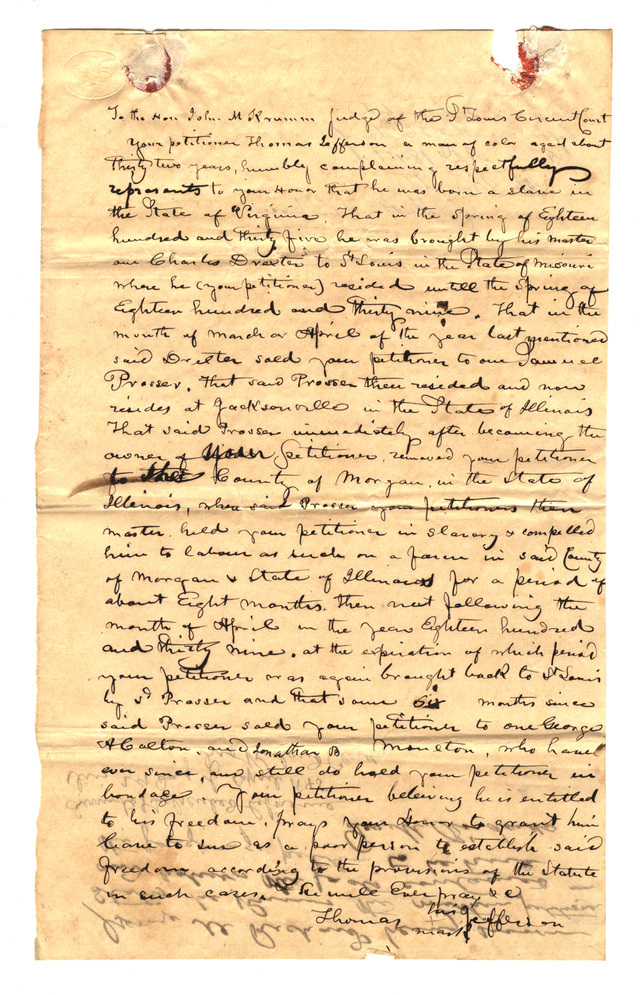 To the Hon John M Krumm Judge of the St Louis Circuit Court
Your petitioner Thomas Jefferson a man of color aged about
thirty two years, humbly complaining respectfully
represents to your Honor that he was born a slave in
the State of Virginia, That in the Spring of Eighteen
hundred and thirty five he was brought by his master
one Charles Drexter to St Louis in the State of Missouri
where he (your petitioner) resided untill the Spring of
Eighteen hundred and thirty nine. That in the
month of March or April of the year last mentioned
said Drexter sold your petitioner to one Samuel
Prosser, That said Prosser then resided and now
resides at Jacksonville in the State of Illinois
That said Prosser immediately after becoming the
owner of your petitioner, removed your petitioner
to the County of Morgan, in the State of
Illinois, where said Prosser your petitioners then
master, held your petitioner in slavery & compelled
him to labour as such on a farm in said County
of Morgan & State of Illinois for a period of
about Eight months, then next following the
month of April in the year Eighteen hundred
and thirty nine, at the expiration of which period
your petitioner was again brought back to St Louis
by sd Prosser and that some six months since
said Prosser sold your petitioner to one George
A Colton, and Jonathan B Moulton, who have
ever since, and still do hold your petitioner in
bondage. Your petitioner believing he is entitled
to his freedom, prays your Honor to grant him
leave to sue as a poor person to establish said
freedom according to the provisions of the Statute
in such cases. & he will Ever pray &c
his
Thomas Jefferson
mark